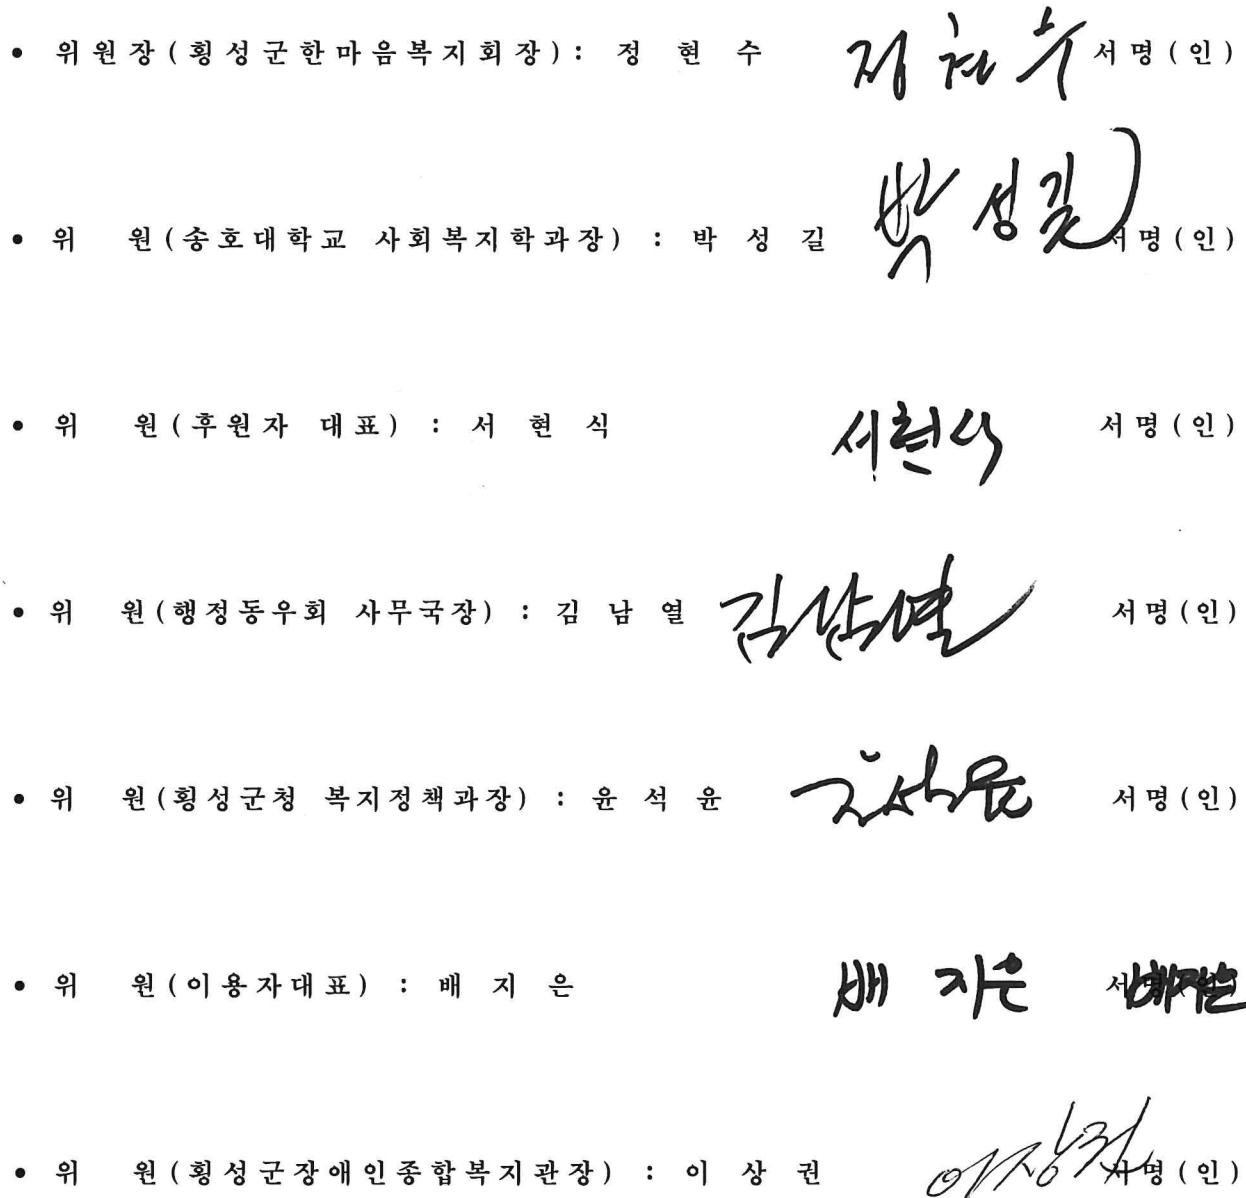 • 위원장(횡성군한마음복지회장): 정 현 수 정현수 서명(인)
• 위 원(송호대학교 사회복지학과장) : 박 성 길 박성길 서명(인)
• 위 원(후원자 대표) : 서 현 식 서현식 서명(인)
• 위 원(행정동우회 사무국장) : 김 남 열 김남열 서명(인)
• 위 원(횡성군청 복지정책과장) : 윤 석 윤 서명(인)
• 위 원(이용자대표) : 배 지 은 배 지은 서명(인)
• 위 원(횡성군장애인종합복지관장) : 이 상 권 이상권 서명(인)